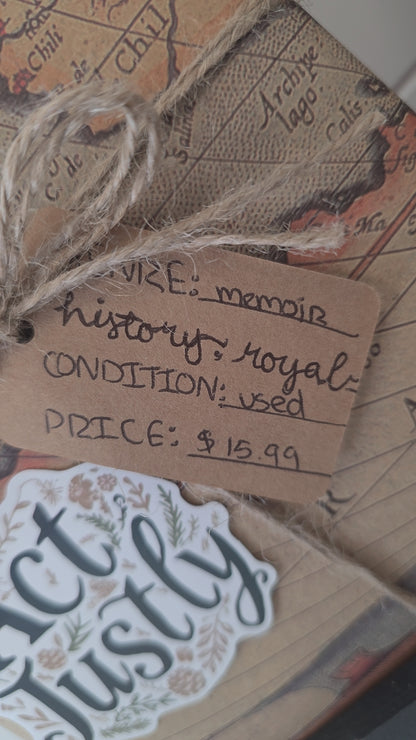 Chili
Chil
Archipe
lago.
Calis
C. de
GENRE: memoir
history; royal-
CONDITION: used
PRICE: $15.99
Act
Justly